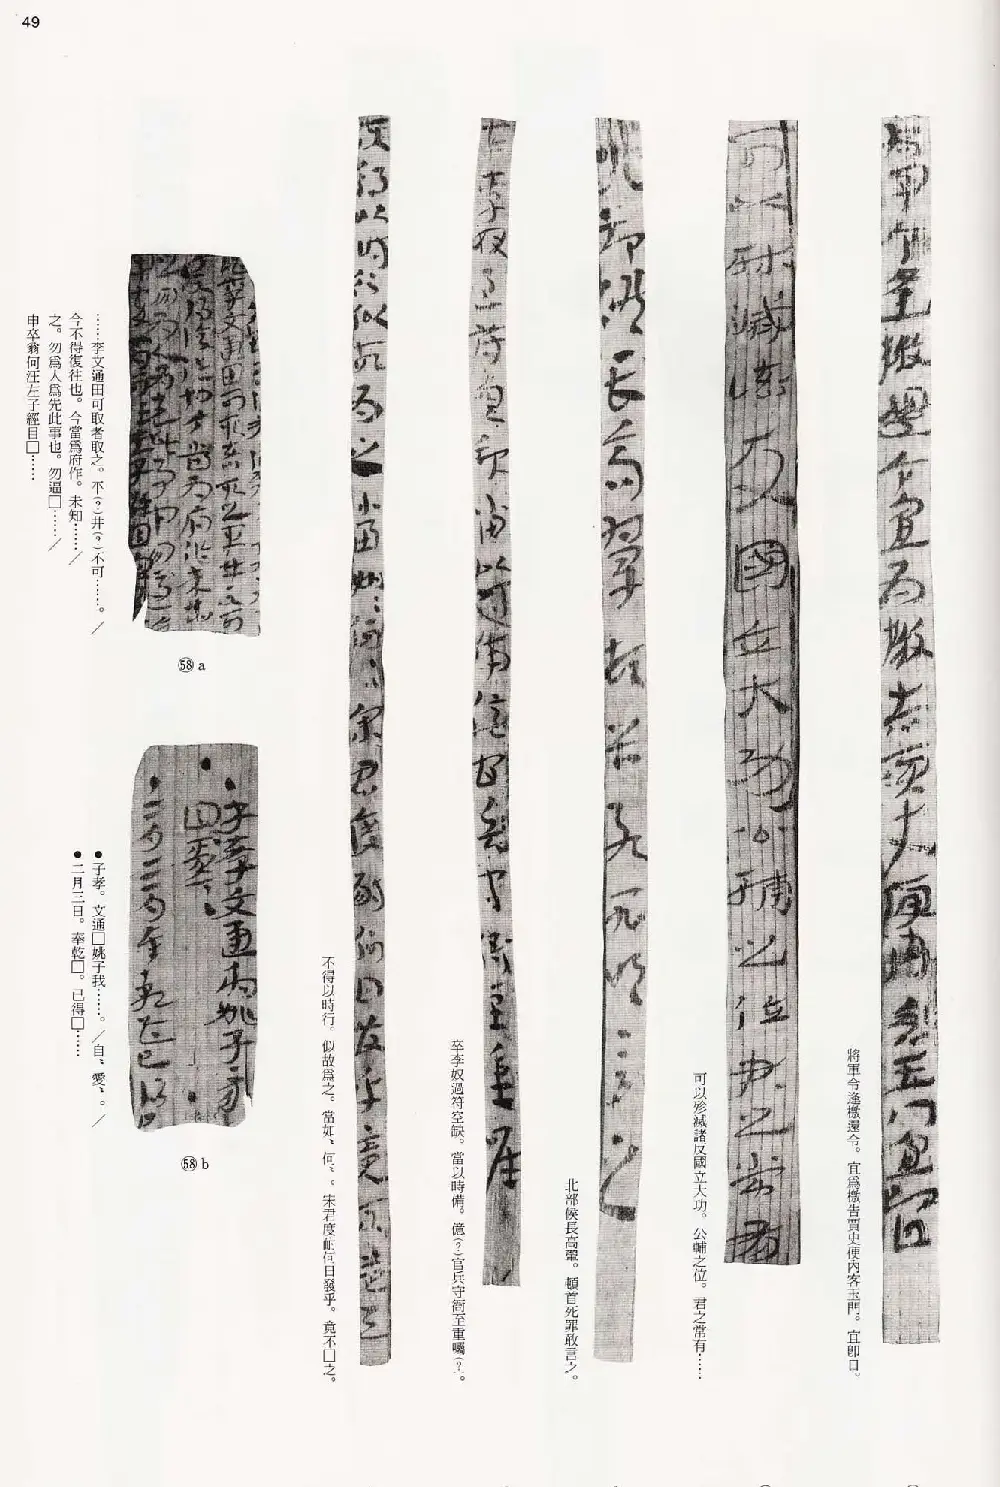 49
將軍令逢檄還令。宜爲檄告賈史便内客玉門。宜卽日。
可以殄滅諸反國立大功。公輔之位。君之常有……
北部候長高暈。頓首死罪敢言之。
卒李奴過符空缺。當以時備。億(?)官兵守銜至重囑(?)。
不得以時行。似故爲之。當如〻何〻。宋君度邮何日發乎。竟不□之。
……李文通田可取者取之。不(?)井(?)不可……。／
今不得復往也。今當爲府作。未知……／
之。勿爲人爲先此事也。勿逼□……／
申卒翁何汪左子經目□……
58 a
●子孝。文通□姚子我……。／自〻愛〻。／
●二月三日。奉乾□。已得□……
58 b